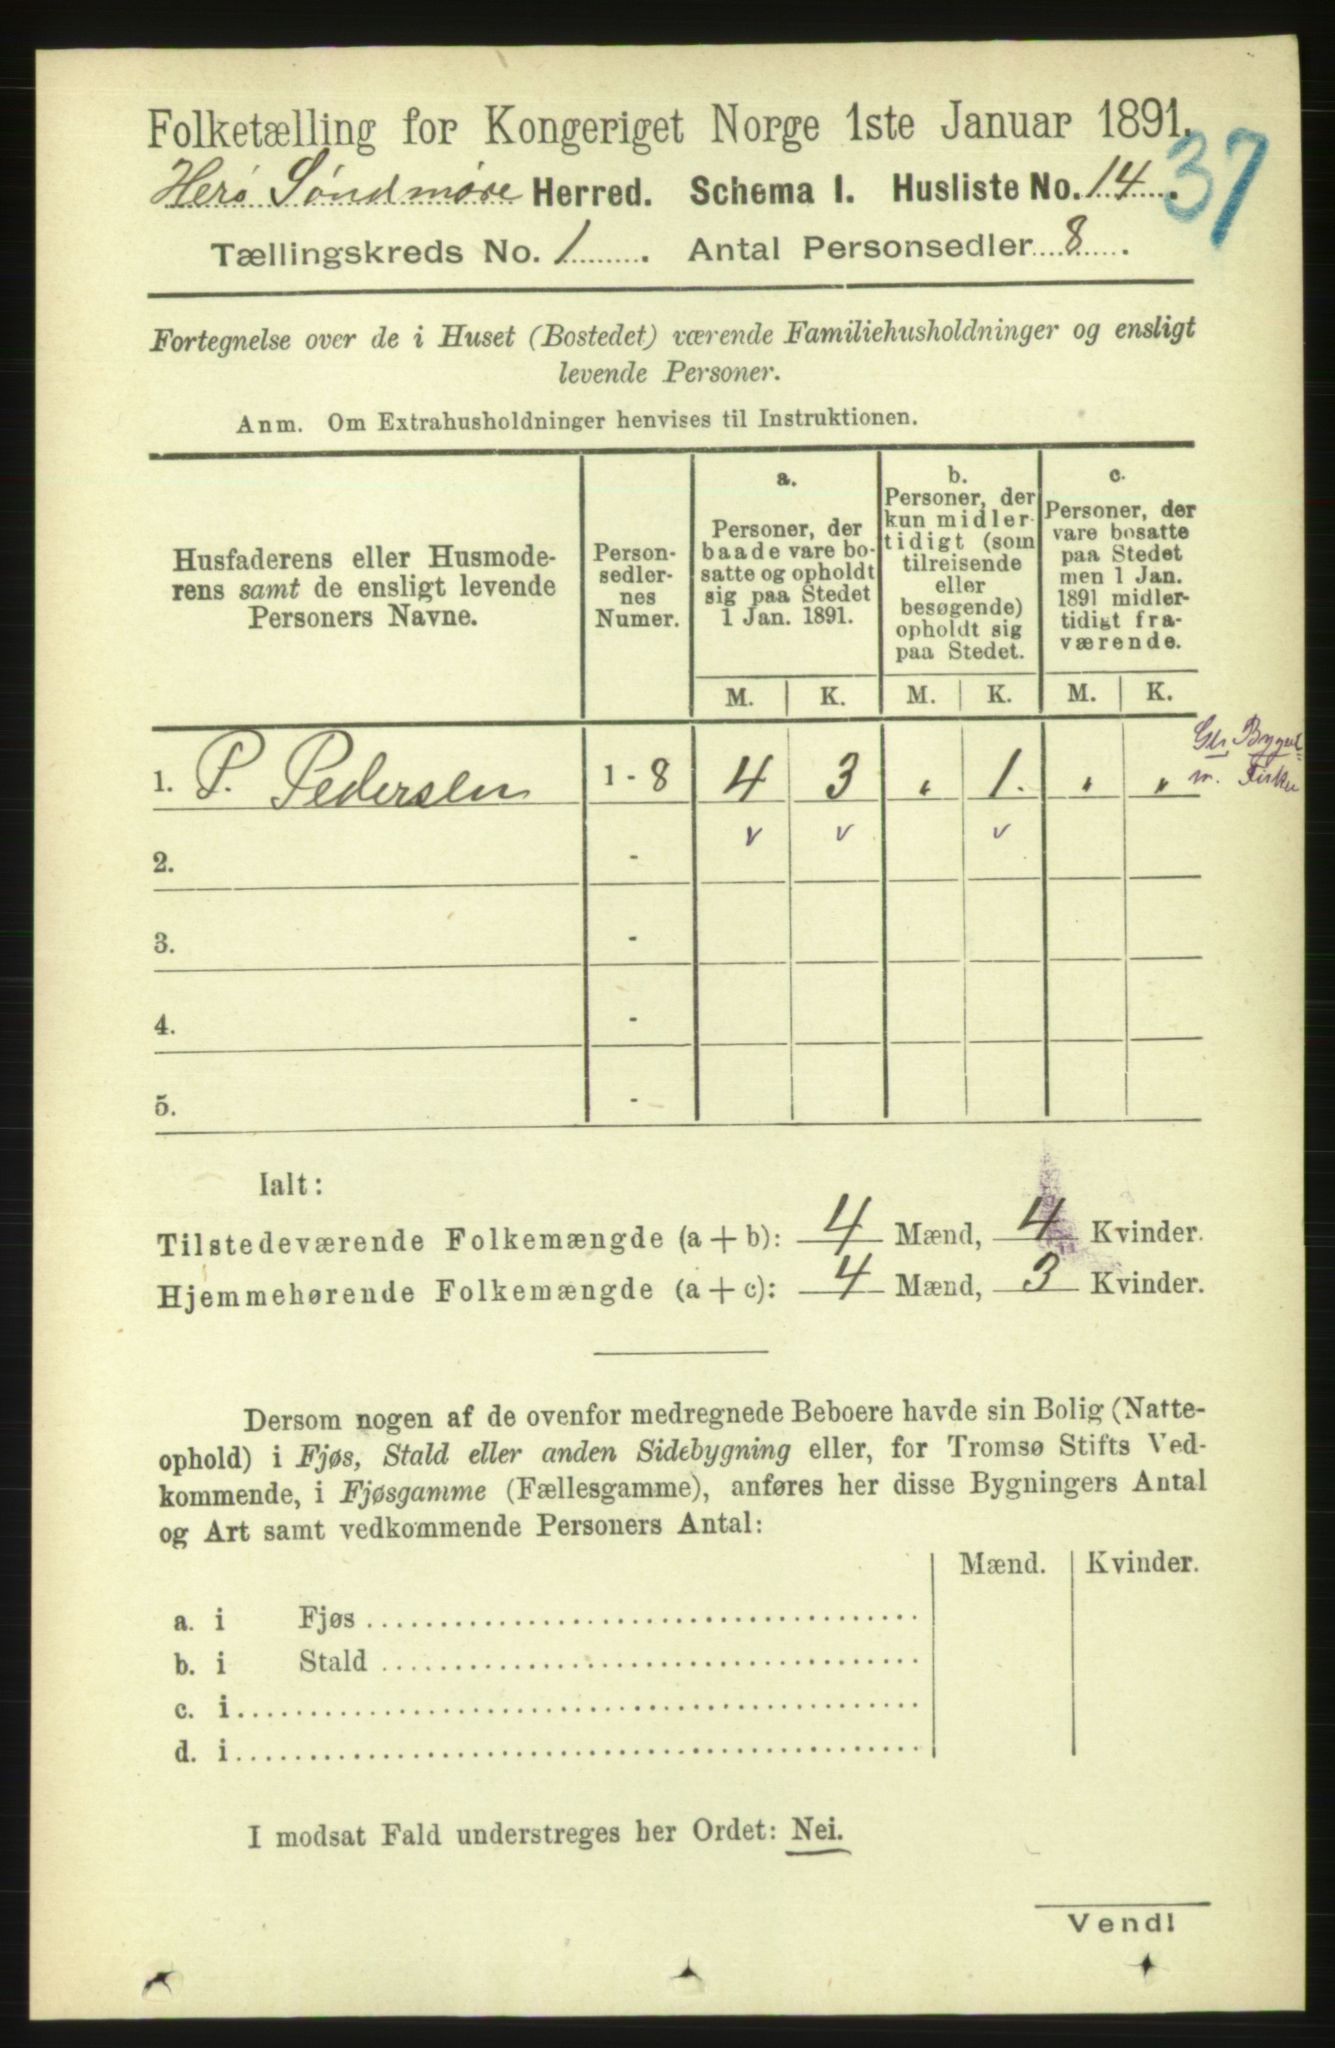 Folketælling for Kongeriget Norge 1ste Januar 1891.
37
Herø Søndmøre Herred. Schema I. Husliste No. 14.
Tællingskreds No. 1. Antal Personsedler 8.
Fortegnelse over de i Huset (Bostedet) værende Familiehusholdninger og ensligt
levende Personer.
Anm. Om Extrahusholdninger henvises til Instruktionen.
Husfaderens eller Husmode-
rens samt de ensligt levende
Personers Navne.
Person-
sedler-
nes
Numer.
a.
Personer, der
baade vare bo-
satte og opholdt
sig paa Stedet
1 Jan. 1891.
b.
Personer, der
kun midler-
tidigt (som
tilreisende
eller
besøgende)
opholdt sig
paa Stedet.
c.
Personer, der
vare bosatte
paa Stedet
men 1 Jan.
1891 midler-
tidigt fra-
værende.
M. K. M. K. M. K.
1. P. Pedersen 1 - 8 4 3 „ 1. „ „
m. Fisker
v v v
2. -
3. -
4. -
5. -
Ialt:
Tilstedeværende Folkemængde (a + b): 4 Mænd, 4 Kvinder.
Hjemmehørende Folkemængde (a + c): 4 Mænd, 3 Kvinder.
Dersom nogen af de ovenfor medregnede Beboere havde sin Bolig (Natte-
ophold) i Fjøs, Stald eller anden Sidebygning eller, for Tromsø Stifts Ved-
kommende, i Fjøsgamme (Fællesgamme), anføres her disse Bygningers Antal
og Art samt vedkommende Personers Antal:
Mænd. Kvinder.
a. i Fjøs
b. i Stald
c. i
d. i
I modsat Fald understreges her Ordet: Nei.
Vend!